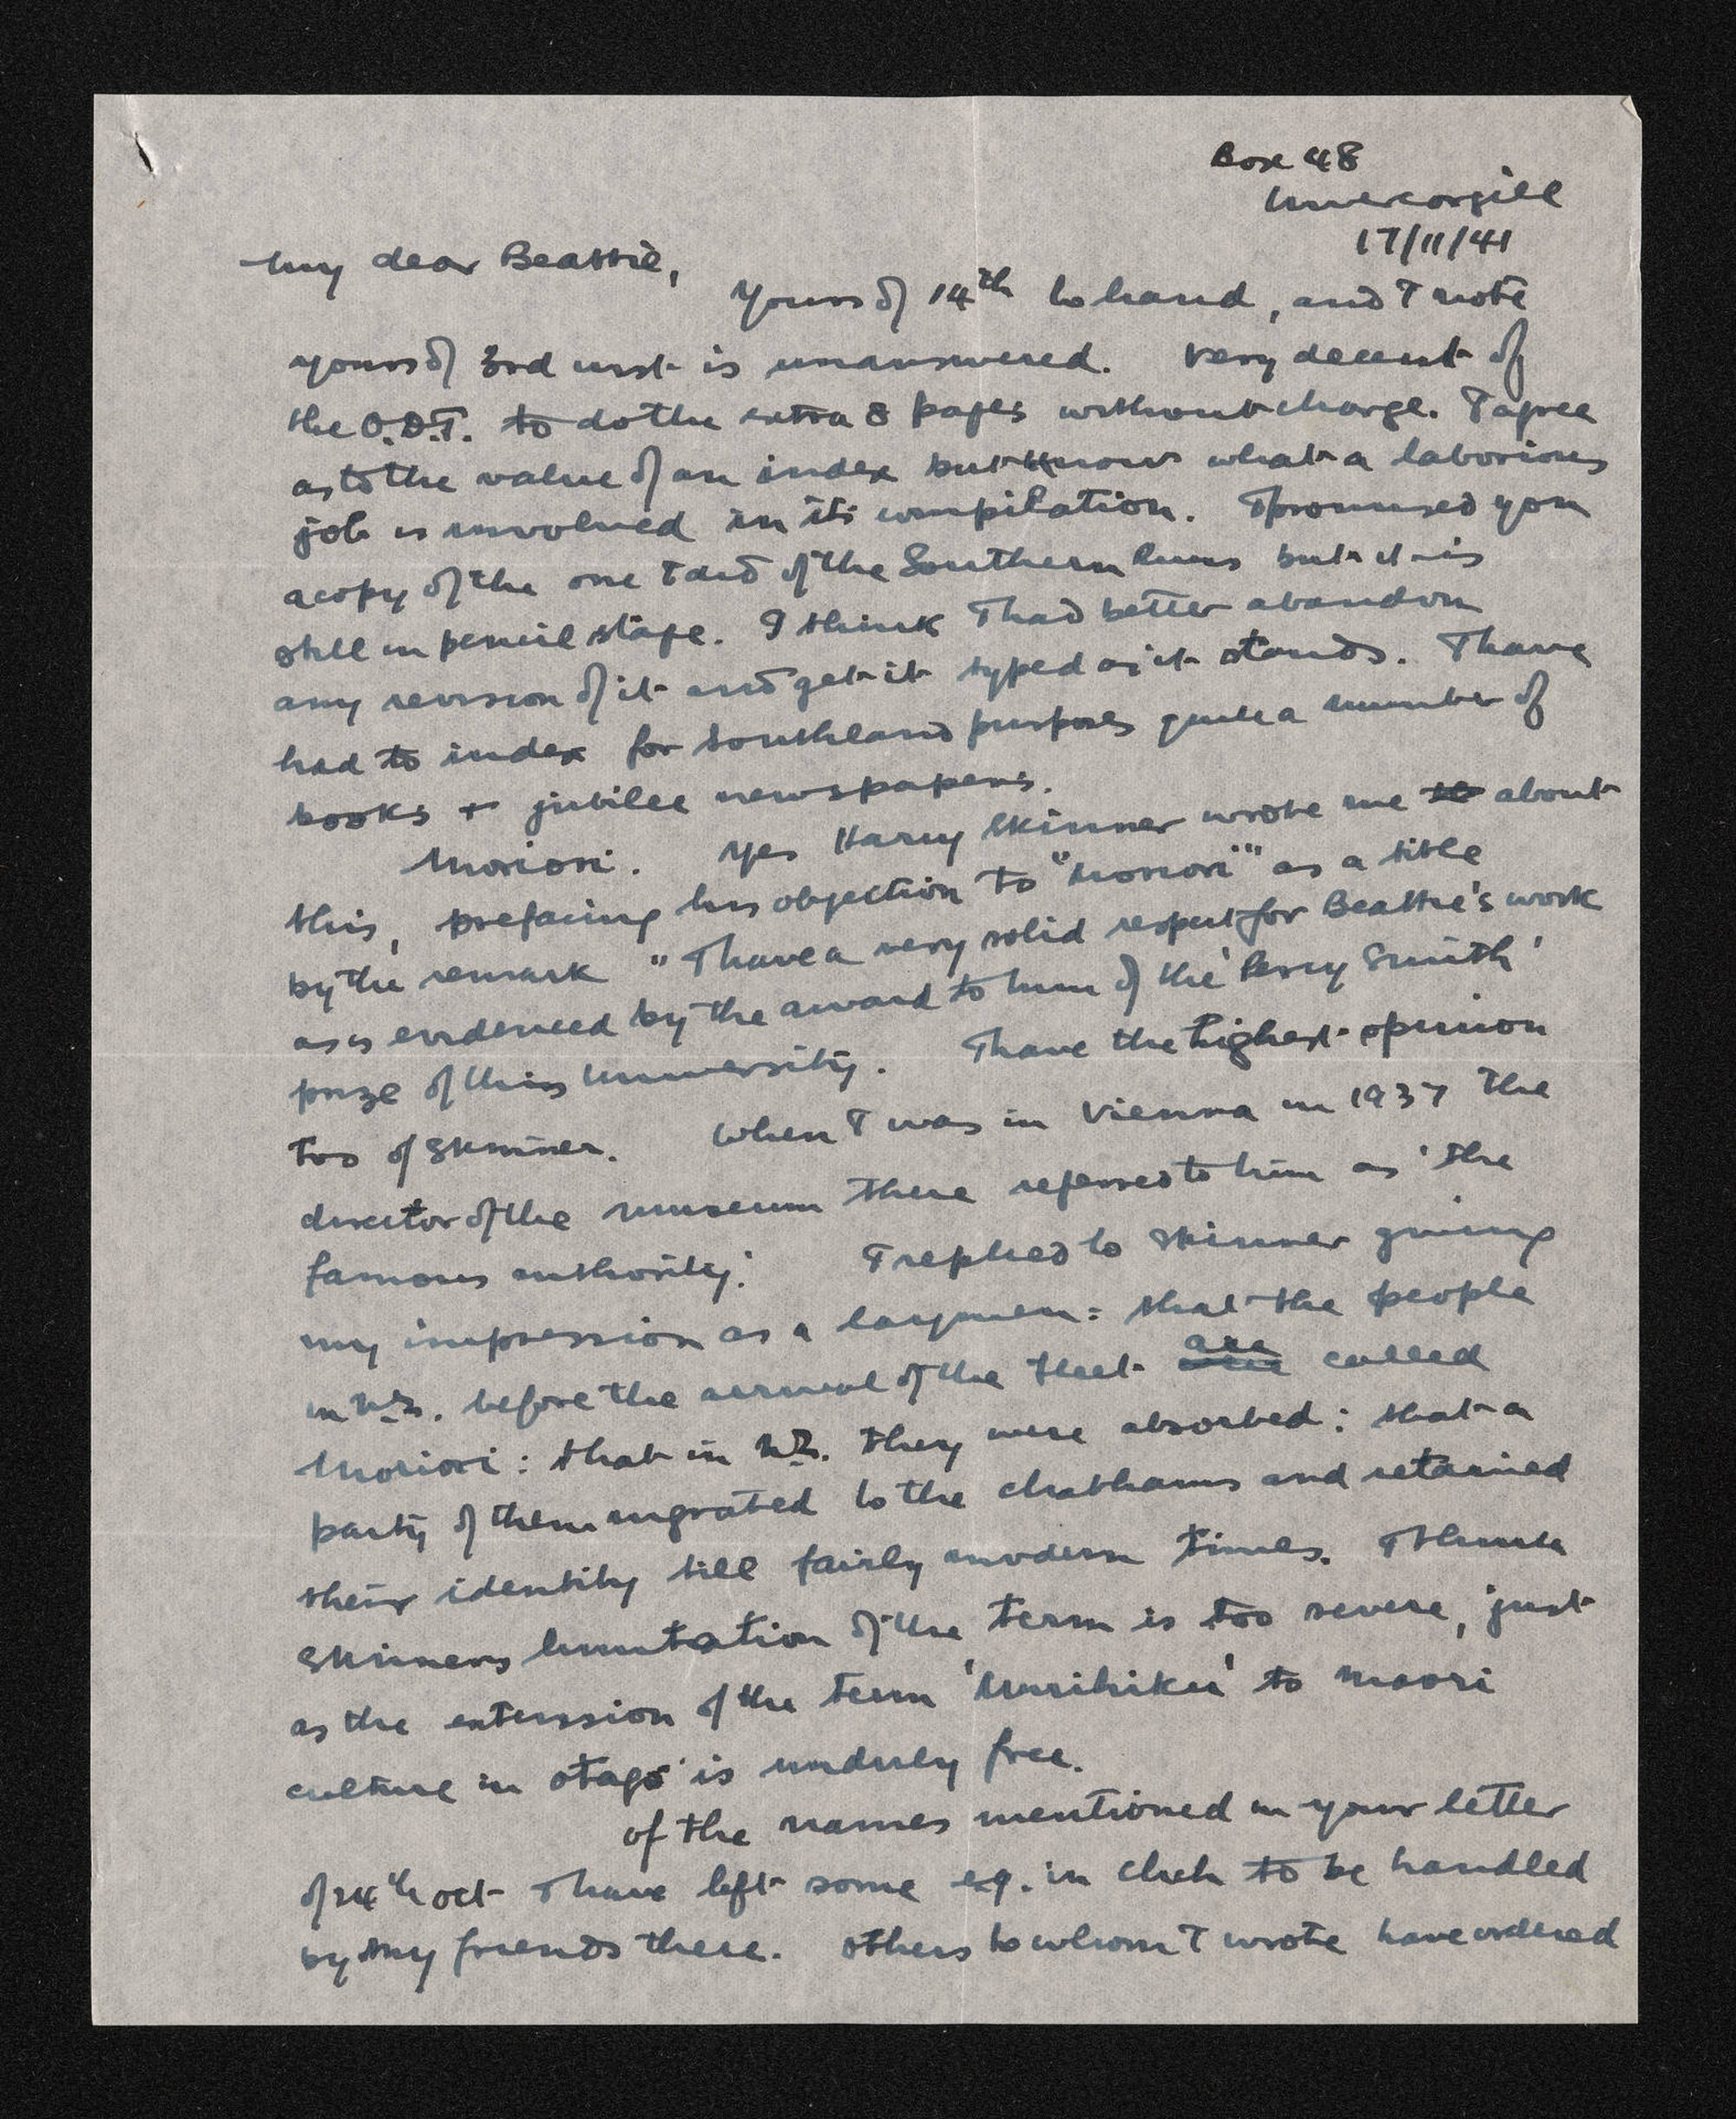 Box 48
Invercargill
17/11/41
My dear Beattie,
Yours of 14th to hand, and I note
yours of 3rd inst is unanswered. Very decent of
the O.D.T. to do the extra 8 pages without charge. I agree
as to the value of an index but know what a laborious
job is involved in its compilation. I promised you
a copy of the one I did of the Southern Runs but it is
still in pencil stage. I think I had better abandon
any revision of it and get it typed as it stands. I have
had to index for Southland purposes quite a number of
books + jubilee newspapers.
Moriori. Yes Harry Skinner wrote me to about
this, prefacing his objection to "Moriori" as a title
by the remark "I have a very solid respect for Beattie's work
as is evidenced by the award to him of the 'Percy Smith'
prize of this University. I have the highest opinion
too of Skinner. When I was in Vienna in 1937 the
director of the museum there referred to him as 'the
famous authority'. I replied to Skinner giving
my impression as a laymen: that the people
in N.Z. before the arrival of the fleet are called
Moriori: that in N.Z. they were absorbed: that a
party of them migrated to the Chathams and retained
their identity till fairly modern times. I think
Skinners limitation of the term is too severe, just
as the extension of the term 'Murihiku' to Maori
culture in Otago is unduly free.
Of the names mentioned in your letter
of 24th Oct I have left some eg. in Chch to be handled
by my friends there. Others to whom I wrote have ordered